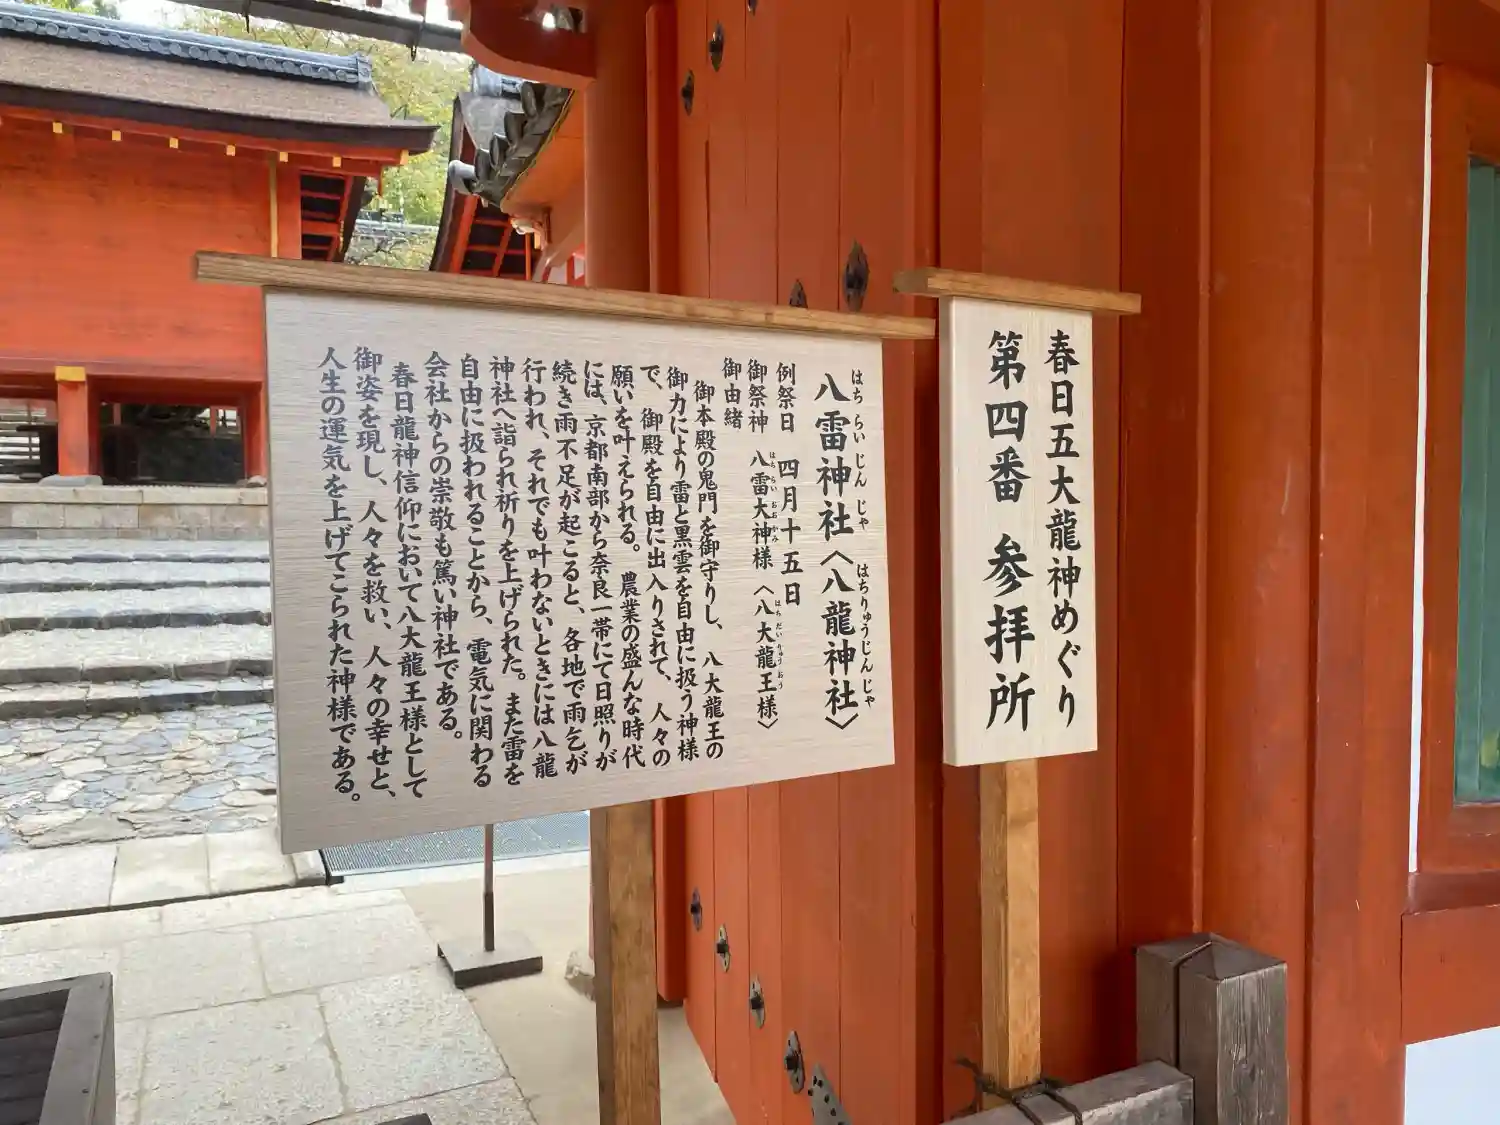 春日五大龍神めぐり
第四番 参拝所
八雷神社〈八龍神社〉
はち らい じん じゃ はちりゅうじんじゃ
例祭日 四月十五日
御祭神 八雷大神様〈八大龍王様〉
はちらい おおかみ はち だい りゅう おう
御由緒
御本殿の鬼門を御守りし、八大龍王の
御力により雷と黒雲を自由に扱う神様
で、御殿を自由に出入りされて、人々の
願いを叶えられる。農業の盛んな時代
には、京都南部から奈良一帯にて日照りが
続き雨不足が起こると、各地で雨乞が
行われ、それでも叶わないときには八龍
神社へ詣られ祈りを上げられた。また雷を
自由に扱われることから、電気に関わる
会社からの崇敬も篤い神社である。
春日龍神信仰において八大龍王様として
御姿を現し、人々を救い、人々の幸せと、
人生の運気を上げてこられた神様である。